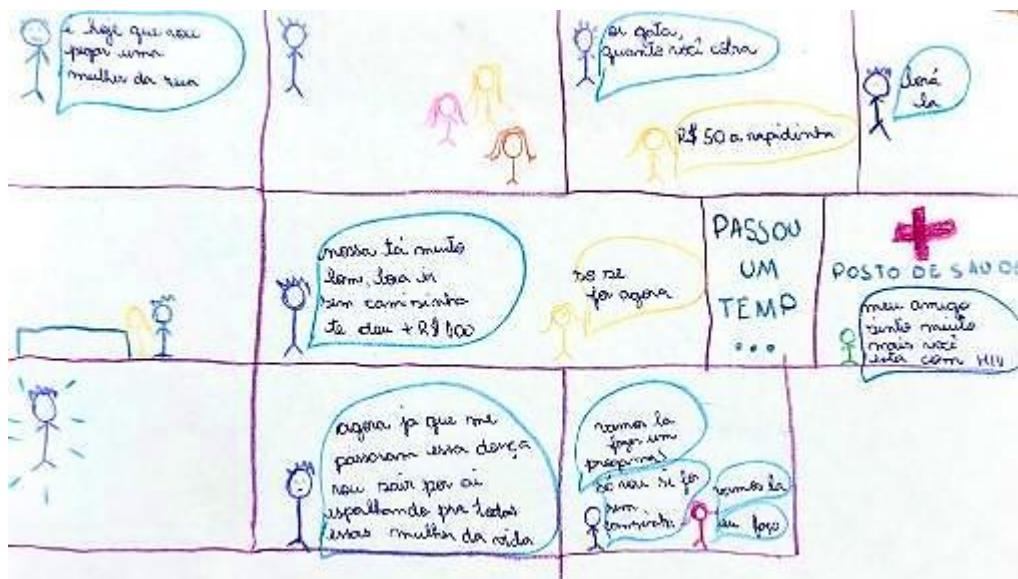 é hoje que vou
pegar uma
mulher da rua
oi gata,
quanto você cobra
R$ 50 a rapidinha
borá
la
nossa tá muito
bom, bora ir
sem camisinha
te dou + R$ 100
só se
for agora
PASSOU
UM
TEMP
...
POSTO DE SAUDE
meu amigo
sinto muito
mais você
esta com HIV
agora ja que me
passaram essa doença
vou sair por ai
espalhando pra todas
essas mulher da vida
vamos la
fazer um
programa?
só vou se for
sem
camisinha
vamos la
eu faço